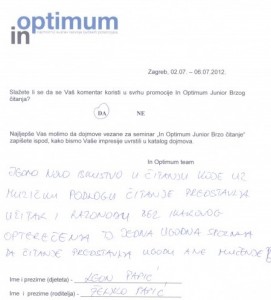 in optimum
Zagreb, 02.07. – 06.07.2012.
Slažete li se da se Vaš komentar koristi u svrhu promocije In Optimum Junior Brzog
čitanja?
DA NE
Najljepše Vas molimo da dojmove vezane za seminar „In Optimum Junior Brzo čitanje"
zapišete ispod, kako bismo Vaše impresije uvrstili u katalog dojmova.
In Optimum team
JEDNO NOVO ISKUSTVO U ČITANJU KOJE UZ
MUZIČKU PODLOGU ČITANJE PREDSTAVLJA
UŽITAK I RAZONODU BEZ IKAKVOG
OPTEREĆENJA TO JEDNA UGODNA SPOZNAJA
DA ČITANJE PREDSTAVLJA UGODU A NE MUČENJE!
Ime i prezime (djeteta) - PAPIĆ
Ime i prezime (roditelja) - ŽELJKO PAPIĆ